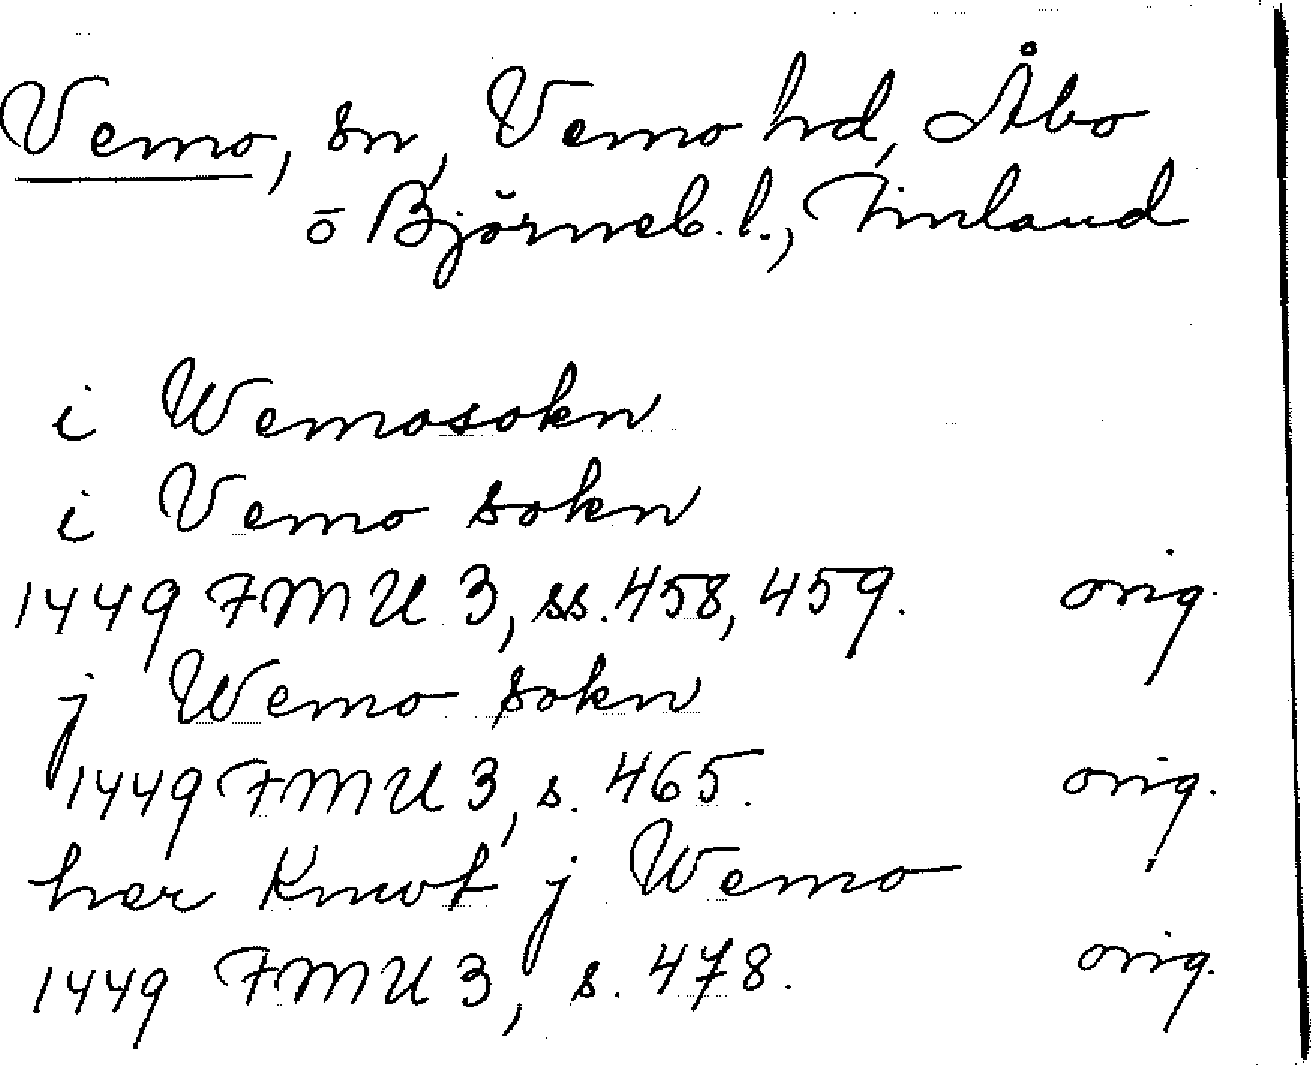 Vemo, sn, Vemo hd, Åbo
o Björneb. l., Finland
i Wemosokn
i Vemo sokn
1449 FMU 3, ss. 458, 459. orig.
j Wemo sokn
1449 FMU 3, s. 465. orig.
her Knwt j Wemo
1449 FMU 3, s. 478. orig.